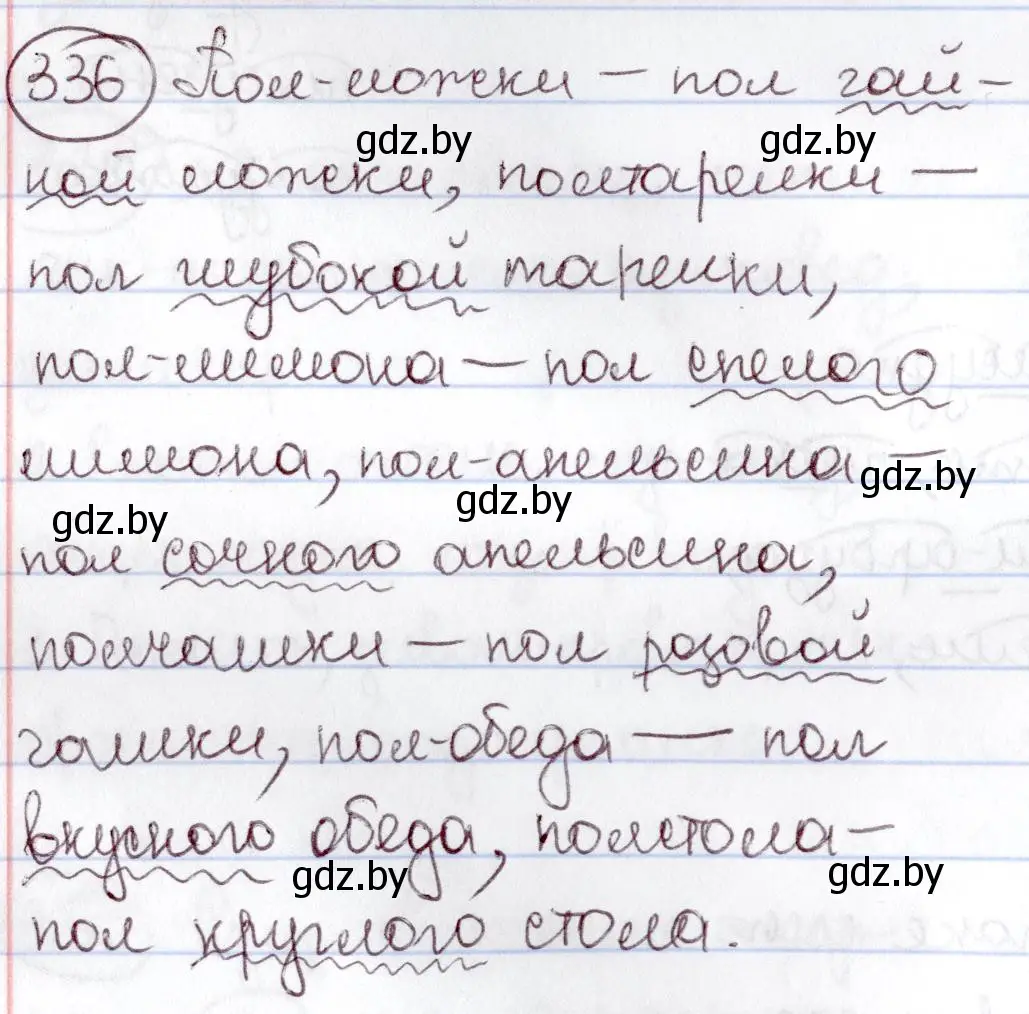 336 Пол-ложки – пол чай-
gdz.by gdz.by
ной ложки, полтарелки –
пол глубокой тарелки,
пол-лимона – пол спелого
лимона, пол-апельсина –
gdz.by gdz.by gdz.by
пол сочного апельсина,
полчашки – пол розовой
чашки, пол-обеда – пол
вкусного обеда, полстола –
gdz.by gdz.by
пол круглого стола.